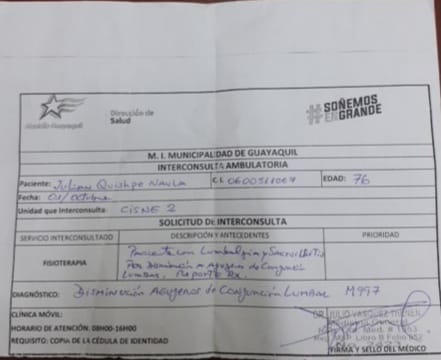 Alcaldía Guayaquil
Dirección de
Salud
#SOÑEMOS
ENGRANDE
M. I. MUNICIPALIDAD DE GUAYAQUIL
INTERCONSULTA AMBULATORIA
Paciente: Julian Quishpe Naula C.I. EDAD: 76
Fecha: 01/octubre
Unidad que Interconsulta: CISNE 2
SOLICITUD DE INTERCONSULTA
SERVICIO INTERCONSULTADO DESCRIPCIÓN Y ANTECEDENTES PRIORIDAD
FISIOTERAPIA
Paciente con Lumbalgia y Sacroileitis
Por Disminución Agujeros de Conjunción
Lumbar, Reporte Rx.
DIAGNÓSTICO: Disminución Agujeros de Conjunción Lumbar M997
CLÍNICA MÓVIL:
HORARIO DE ATENCIÓN: 08H00-16H00
REQUISITO: COPIA DE LA CÉDULA DE IDENTIDAD
DR. JULIO VASQUEZ
FIRMA Y SELLO DEL MÉDICO